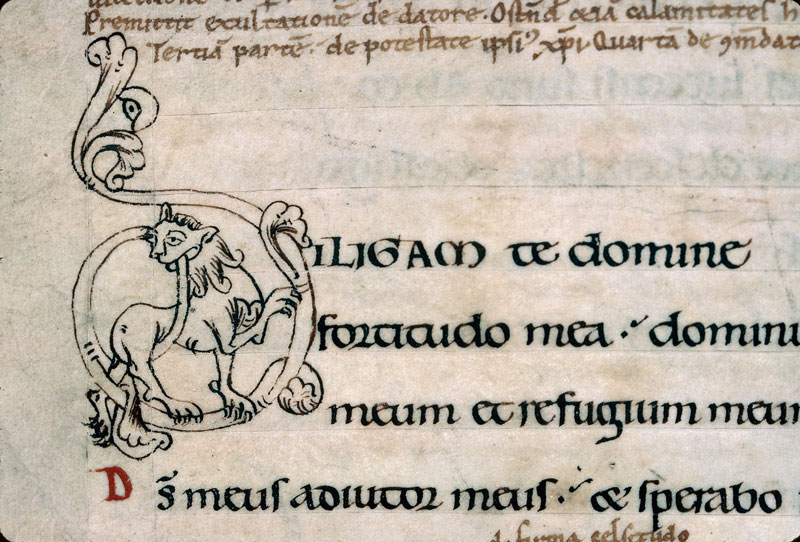 Premittit exultatione de datore. Ostend calamitates h
Tertiā partē. de potestate ipsiꝰ xp̄i. Quartā de
DILIGAM te domine
fortitudo mea . dominu
meum et refugium meum
D s̄ meus adiutor meus . & sperabo